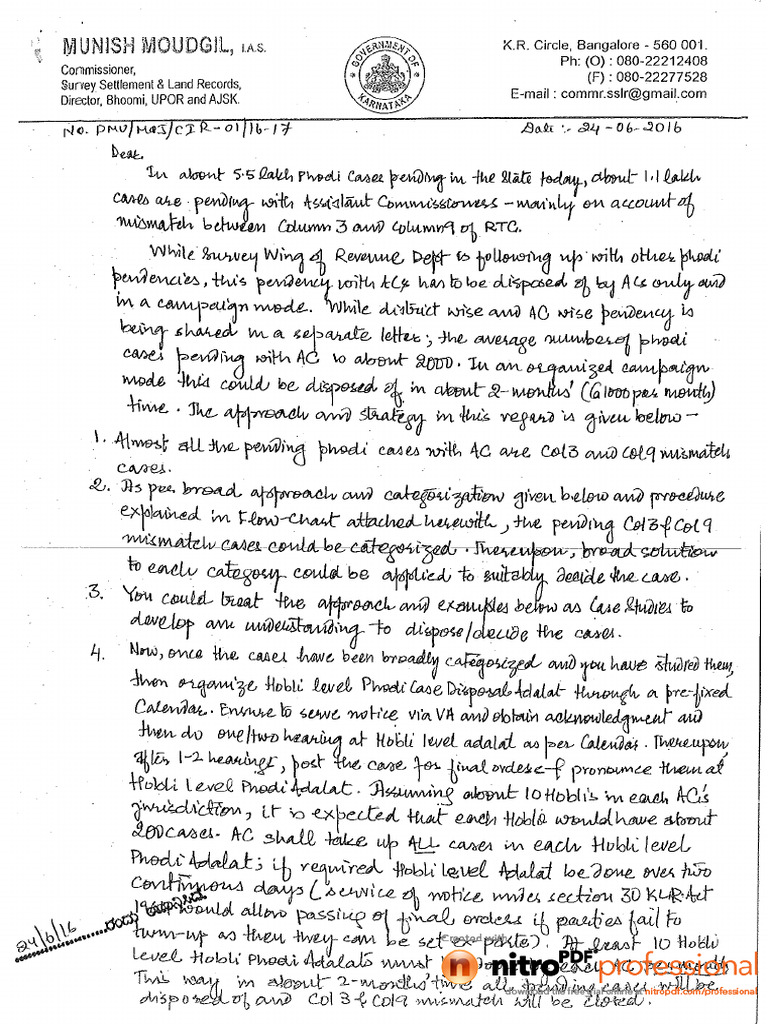 MUNISH MOUDGIL, I.A.S.
Commissioner,
Survey Settlement & Land Records,
Director, Bhoomi, UPOR and AJSK.
GOVERNMENT OF KARNATAKA
K.R. Circle, Bangalore - 560 001.
Ph: (O) : 080-22212408
(F) : 080-22277528
E-mail : commr.sslr@gmail.com
No. PMU/MOJ/CIR-01/16-17
Date :- 24-06-2016
Dear,
In about 5.5 lakh Phodi Cases pending in the State today, about 1.1 lakh
cases are pending with Assistant Commissioners - mainly on account of
mismatch between Column 3 and Column 9 of RTC.
While Survey Wing of Revenue Dept is following up with other phodi
pendencies, this pendency with ACs has to be disposed of by ACs only and
in a campaign mode. While district wise and AC wise pendency is
being shared in a separate letter; the average number of phodi
cases pending with AC is about 2000. In an organized campaign
mode this could be disposed of in about 2-months' (@1000 per month)
time. The approach and strategy in this regard is given below -
1. Almost all the pending phodi cases with AC are Col 3 and Col 9 mismatch
cases.
2. As per broad approach and categorization given below and procedure
explained in Flow-Chart attached herewith, the pending Col 3 & Col 9
mismatch cases could be categorized. Thereupon, broad solution
to each category could be applied to suitably decide the case.
3. You could treat the approach and examples below as Case Studies to
develop an understanding to dispose/decide the cases.
4. Now, once the cases have been broadly categorized and you have studied them,
then organize Hobli level Phodi Case Disposal Adalat through a pre-fixed
Calendar. Ensure to serve notice via VA and obtain acknowledgment and
then do one/two hearing at Hobli level adalat as per Calendar. Thereupon,
after 1-2 hearings, post the case for final orders & pronounce them at
Hobli Level Phodi Adalat. Assuming about 10 Hobli's in each AC's
jurisdiction, it is expected that each Hobli would have about
200 cases. AC shall take up ALL cases in each Hobli level
Phodi Adalat; if required Hobli level Adalat be done over two
continuous days (service of notice under section 30 KLR Act
would allow passing of final orders if parties fail to
turn-up as then they can be set ex-parte). At least 10 Hobli
level Hobli Phodi Adalats must
This way in about 2-months' time all pending cases will be
disposed of and Col 3 & Col 9 mismatch will be closed.
24/6/16
Created with
nitroPDF professional
download the free trial online at nitropdf.com/professional